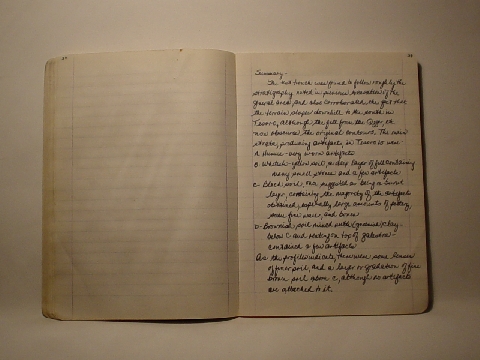 Summary -
The test trench was found to follow roughly the
stratigraphy noted in previous excavation of the
general area and also corroborated the fact that
the terrain slopes downhill to the south in
although the fill from the
now obscures the original contours. The main
strata, producing artifacts in Tesoro were
A Humus - very worn artifacts
B Whitish-yellow soil, a deep layer of fill containing
many small stones and a few artifacts
C - Black soil, was suggested as being a burnt
layer, containing the majority of the artifacts
obtained, especially large amounts of pottery,
some fine ware, and bones
D - Brownish soil mixed with (ground) clay -
below C and resting on top of
contained a few artifacts
As the profiles indicate, there were some lenses
of finer soil, and a large of fine
brown soil above C, although no artifacts
are attached to it.